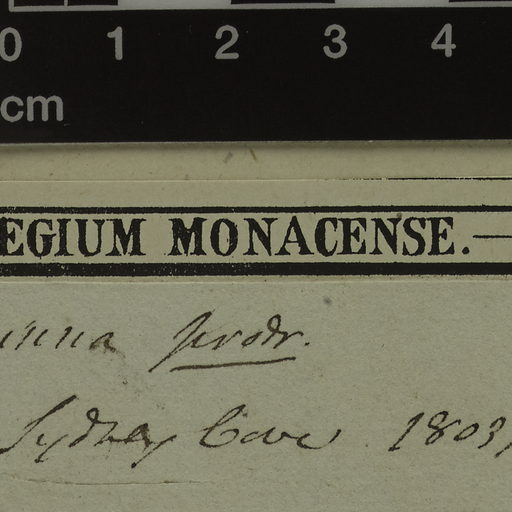 0 1 2 3 4
cm
EGIUM MONACENSE.
inna prodr.
Sydney Cove 1803,